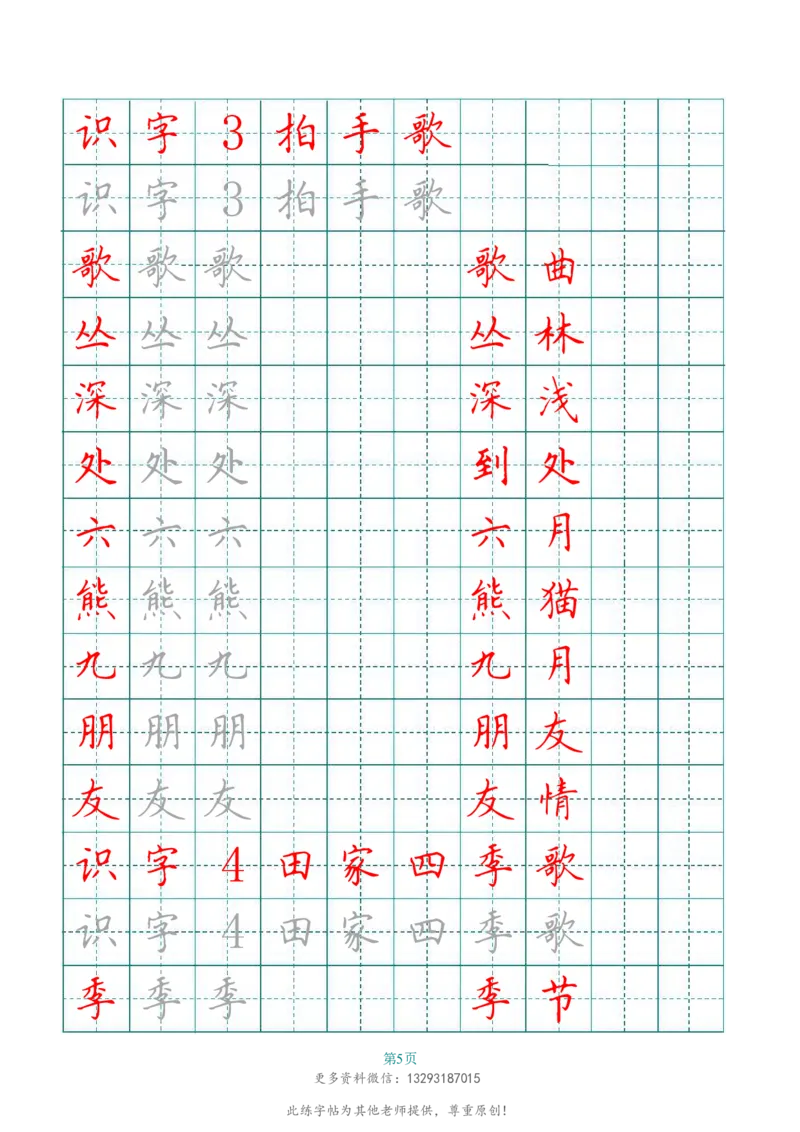 识字3拍手歌
识字3拍手歌
歌歌歌 歌曲
丛丛丛 丛林
深深深 深浅
处处处 到处
六六六 六月
熊熊熊 熊猫
九九九 九月
朋朋朋 朋友
友友友 友情
识字4田家四季歌
识字4田家四季歌
季季季 季节
第5页
更多资料微信：13293187015
此练字帖为其他老师提供，尊重原创！